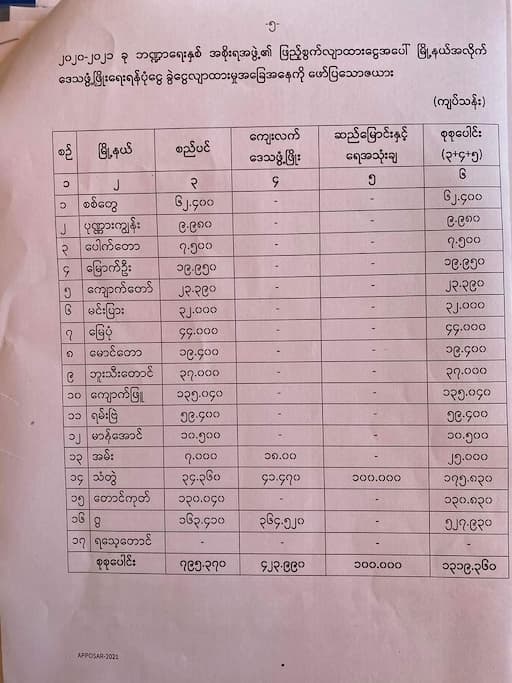 -၅-
၂၀၂၀-၂၀၂၁ ခု ဘဏ္ဍာရေးနှစ် အစိုးရအဖွဲ့၏ ဖြည့်စွက်လျာထားငွေအပေါ် မြို့နယ်အလိုက်
ဒေသဖွံ့ဖြိုးရေးရန်ပုံငွေ ခွဲငွေလျာထားမှုအခြေအနေကို ဖော်ပြသောဇယား
(ကျပ်သန်း)
စဉ် မြို့နယ် စည်ပင် ကျေးလက် ဒေသဖွံ့ဖြိုး ဆည်မြောင်းနှင့် ရေအသုံးချ စုစုပေါင်း (၃+၄+၅)
၁ ၂ ၃ ၄ ၅ ၆
၁ စစ်တွေ ၆၂.၄၀၀ - - ၆၂.၄၀၀
၂ ပုဏ္ဏားကျွန်း ၉.၉၈၀ - - ၉.၉၈၀
၃ ပေါက်တော ၇.၅၀၀ - - ၇.၅၀၀
၄ မြောက်ဦး ၁၉.၉၅၀ - - ၁၉.၉၅၀
၅ ကျောက်တော် ၂၃.၃၉၀ - - ၂၃.၃၉၀
၆ မင်းပြား ၃၂.၀၀၀ - - ၃၂.၀၀၀
၇ မြေပုံ ၄၄.၀၀၀ - - ၄၄.၀၀၀
၈ မောင်တော ၁၉.၄၀၀ - - ၁၉.၄၀၀
၉ ဘူးသီးတောင် ၃၇.၀၀၀ - - ၃၇.၀၀၀
၁၀ ကျောက်ဖြူ ၁၃၅.၀၄၀ - - ၁၃၅.၀၄၀
၁၁ ရမ်းဗြဲ ၅၉.၄၀၀ - - ၅၉.၄၀၀
၁၂ မာန်အောင် ၁၀.၅၀၀ - - ၁၀.၅၀၀
၁၃ အမ်း ၇.၀၀၀ ၁၈.၀၀ - ၂၅.၀၀၀
၁၄ သံတွဲ ၃၄.၃၆၀ ၄၁.၄၇၀ ၁၀၀.၀၀၀ ၁၇၅.၈၃၀
၁၅ တောင်ကုတ် ၁၃၀.၀၄၀ - - ၁၃၀.၈၃၀
၁၆ ဂွ ၁၆၃.၄၁၀ ၃၆၄.၅၂၀ - ၅၂၇.၉၃၀
၁၇ ရသေ့တောင် - - - -
စုစုပေါင်း ၇၉၅.၃၇၀ ၄၂၃.၉၉၀ ၁၀၀.၀၀၀ ၁၃၁၉.၃၆၀
APPOSAR-2021